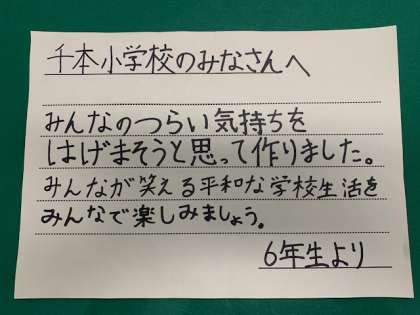 千本小学校のみなさんへ
みんなのつらい気持ちを
はげまそうと思って作りました。
みんなが笑える平和な学校生活を
みんなで楽しみましょう。
6年生より